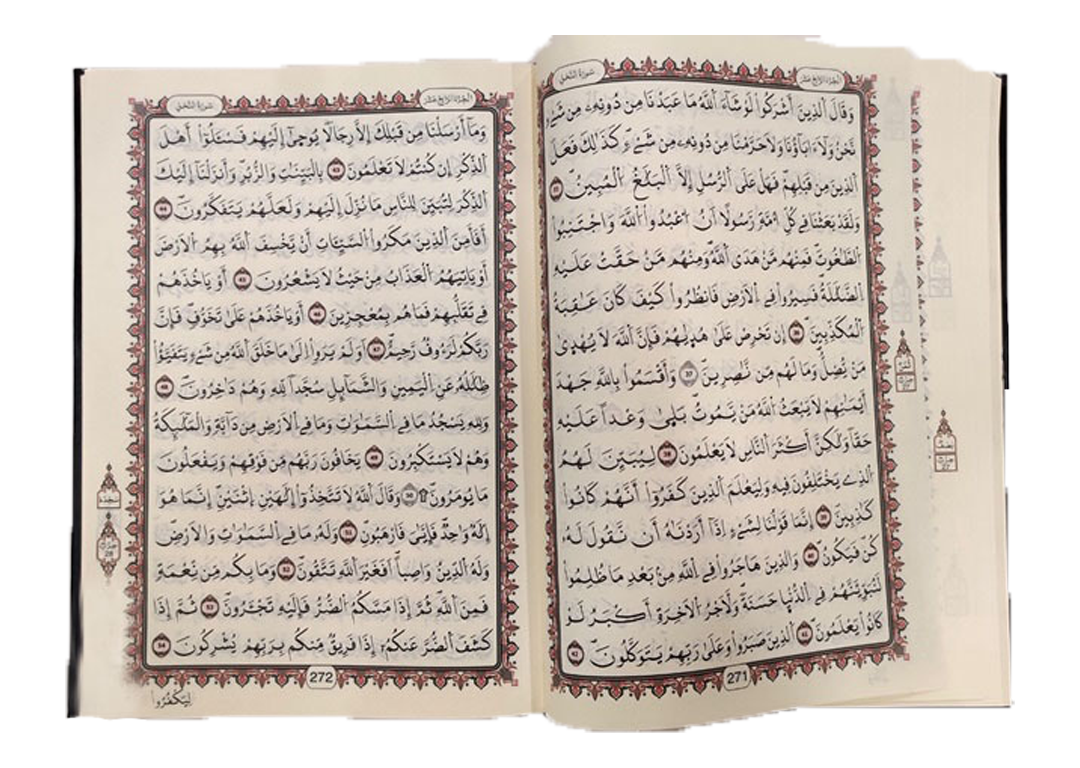 الجزء الرابع عشر سورة النحل
وَقَالَ الذِينَ أَشْرَكُوا لَوْ شَاءَ اَللَّهُ مَا عَبَدْنَا مِن دُونِهِ مِن شَيْءٍ
نَّحْنُ وَلَا ءَابَاؤُنَا وَلَا حَرَّمْنَا مِن دُونِهِ مِن شَيْءٍ كَذَالِكَ فَعَلَ
اَلذِينَ مِن قَبْلِهِمْ فَهَلْ عَلَى اَلرُّسُلِ إِلَّا اَلْبَلَٰغُ اُلْمُبِينُ 35
وَلَقَدْ بَعَثْنَا فِي كُلِّ أُمَّةٍ رَّسُولًا أَنُ اُعْبُدُوا اُللَّهَ وَاجْتَنِبُوا
اُلطَّٰغُوتَ فَمِنْهُم مَّنْ هَدَى اَللَّهُ وَمِنْهُم مَّنْ حَقَّتْ عَلَيْهِ
اِلضَّلَٰلَةُ فَسِيرُوا فِي اِلْأَرْضِ فَانظُرُوا كَيْفَ كَانَ عَٰقِبَةُ
اُلْمُكَذِّبِينَ 36 إِن تَحْرِصْ عَلَىٰ هُدَىٰهُمْ فَإِنَّ اَللَّهَ لَا يُهْدَىٰ
مَنْ يُّضِلُّ وَمَا لَهُم مِّن نَّٰصِرِينَ 37 وَأَقْسَمُوا بِاللَّهِ جَهْدَ
أَيْمَٰنِهِمْ لَا يَبْعَثُ اُللَّهُ مَنْ يَّمُوتُ بَلَىٰ وَعْدًا عَلَيْهِ
حَقًّا وَلَٰكِنَّ أَكْثَرَ اَلنَّاسِ لَا يَعْلَمُونَ 38 لِيُبَيِّنَ لَهُمُ
اُلذِي يَخْتَلِفُونَ فِيهِ وَلِيَعْلَمَ اَلذِينَ كَفَرُوا أَنَّهُمْ كَانُوا
كَٰذِبِينَ 39 إِنَّمَا قَوْلُنَا لِشَيْءٍ إِذَا أَرَدْنَٰهُ أَن نَّقُولَ لَهُ
كُن فَيَكُونُ 40 وَالذِينَ هَاجَرُوا فِي اِللَّهِ مِنْ بَعْدِ مَا ظُلِمُوا
لَنُبَوِّئَنَّهُمْ فِي اِلدُّنْيَا حَسَنَةً وَلَأَجْرُ اُلْآخِرَةِ أَكْبَرُ لَوْ
كَانُوا يَعْلَمُونَ 41 اَلذِينَ صَبَرُوا وَعَلَىٰ رَبِّهِمْ يَتَوَكَّلُونَ 42
271
الجزء الرابع عشر سورة النحل
وَمَا أَرْسَلْنَا مِن قَبْلِكَ إِلَّا رِجَالًا يُوحَىٰ إِلَيْهِمْ فَسْـَٔلُوا أَهْلَ
اَلذِّكْرِ إِن كُنتُمْ لَا تَعْلَمُونَ 43 بِالْبَيِّنَٰتِ وَالزُّبُرِ وَأَنزَلْنَا إِلَيْكَ
اَلذِّكْرَ لِتُبَيِّنَ لِلنَّاسِ مَا نُزِّلَ إِلَيْهِمْ وَلَعَلَّهُمْ يَتَفَكَّرُونَ 44
أَفَأَمِنَ اَلذِينَ مَكَرُوا اُلسَّيِّـَٔاتِ أَنْ يَّخْسِفَ اَللَّهُ بِهِمُ اُلْأَرْضَ
أَوْ يَاتِيَهُمُ اُلْعَذَابُ مِنْ حَيْثُ لَا يَشْعُرُونَ 45 أَوْ يَاخُذَهُمْ
فِي تَقَلُّبِهِمْ فَمَا هُم بِمُعْجِزِينَ 46 أَوْ يَاخُذَهُمْ عَلَىٰ تَخَوُّفٍ فَإِنَّ
رَبَّكُمْ لَرَءُوفٌ رَّحِيمٌ 47 أَوَلَمْ يَرَوْا إِلَىٰ مَا خَلَقَ اَللَّهُ مِن شَيْءٍ يَتَفَيَّؤُا
ظِلَٰلُهُ عَنِ اِلْيَمِينِ وَالشَّمَائِلِ سُجَّدًا لِّلهِ وَهُمْ دَٰخِرُونَ 48
وَلِلهِ يَسْجُدُ مَا فِي اِلسَّمَٰوَٰتِ وَمَا فِي اِلْأَرْضِ مِن دَابَّةٍ وَالْمَلَٰئِكَةُ
وَهُمْ لَا يَسْتَكْبِرُونَ 49 يَخَافُونَ رَبَّهُم مِّن فَوْقِهِمْ وَيَفْعَلُونَ
مَا يُومَرُونَ ۩ 50 وَقَالَ اَللَّهُ لَا تَتَّخِذُوا إِلَٰهَيْنِ اِثْنَيْنِ إِنَّمَا هُوَ
إِلَٰهٌ وَٰحِدٌ فَإِيَّٰيَ فَارْهَبُونِ 51 وَلَهُ مَا فِي اِلسَّمَٰوَٰتِ وَالْأَرْضِ
وَلَهُ اُلدِّينُ وَاصِبًا أَفَغَيْرَ اَللَّهِ تَتَّقُونَ 52 وَمَا بِكُم مِّن نِّعْمَةٍ
فَمِنَ اَللَّهِ ثُمَّ إِذَا مَسَّكُمُ اُلضُّرُّ فَإِلَيْهِ تَجْـَٔرُونَ 53 ثُمَّ إِذَا
كَشَفَ اَلضُّرَّ عَنكُمْ إِذَا فَرِيقٌ مِّنكُم بِرَبِّهِمْ يُشْرِكُونَ 54
272
لِيَكْفُرُوا
سجدة